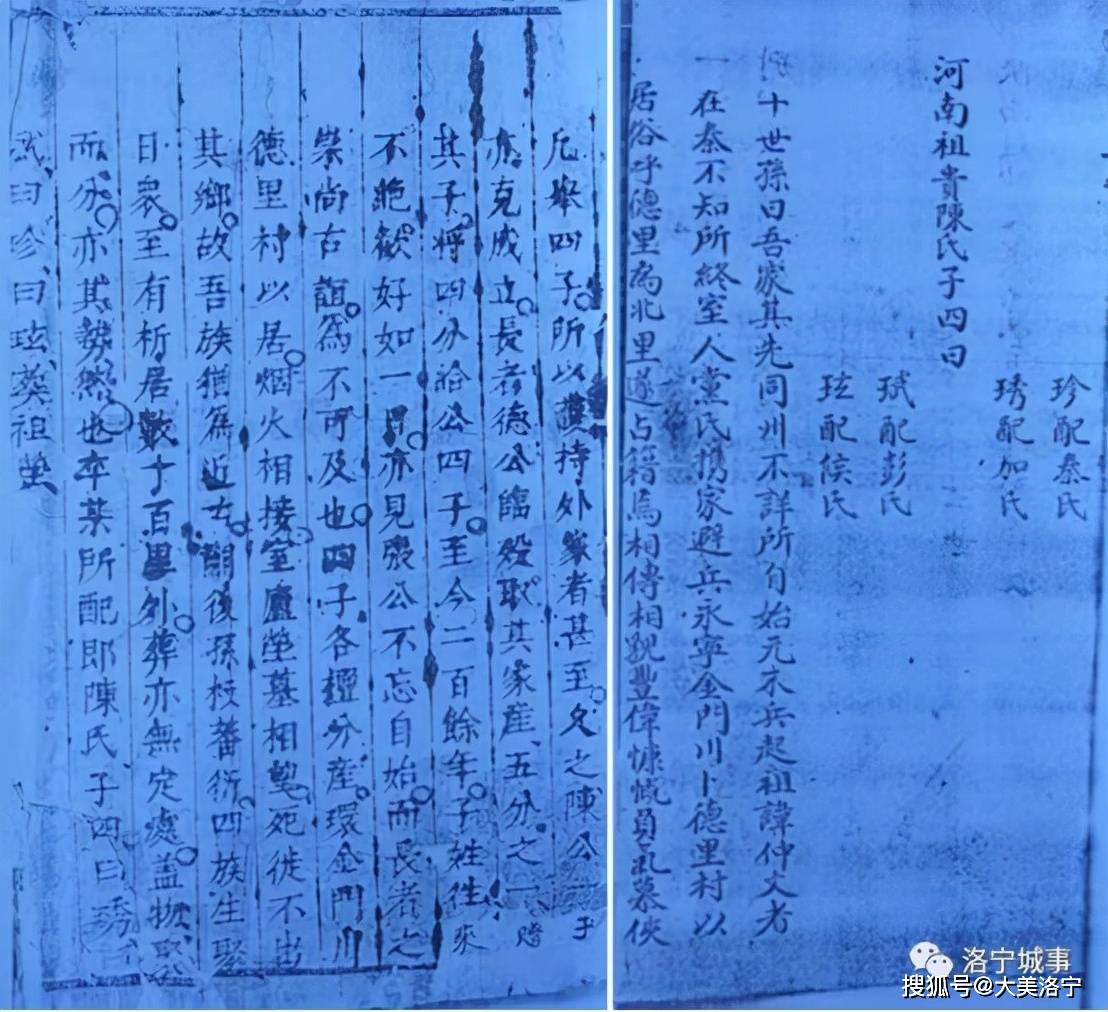 珍配秦氏
琇配加氏
河南祖貴陳氏子四曰
珷配彭氏
玹配侯氏
十世孫曰吾家其先同州不詳所自始元末兵起祖諱仲文者
一在秦不知所終室人黨氏携家避兵永寧金門川卜德里村以
居俗呼德里為北里遂占籍焉相傳相貌豐偉慷慨負氣慕俠
凡舉四子所以護持外家者甚至久之陳公子
亦克成立長者德公臨歿取其家産五分之一贈
其子將四分給公四子至今二百餘年子姓往來
不絶歡好如一日亦見張公不忘自始而長者之
崇尚古誼為不可及也四子各擅分産環金門川
德里村以居烟火相接室廬塋墓相望死徙不出
其鄉故吾族猶為近古關後孫枝蕃衍四族生聚
日衆至有析居數十百里外葬亦無定處盖物聚
而分亦其勢然也卒葬所配即陳氏子四曰琇
珷曰珍曰玹葬祖塋
洛宁城事
搜狐号@大美洛宁